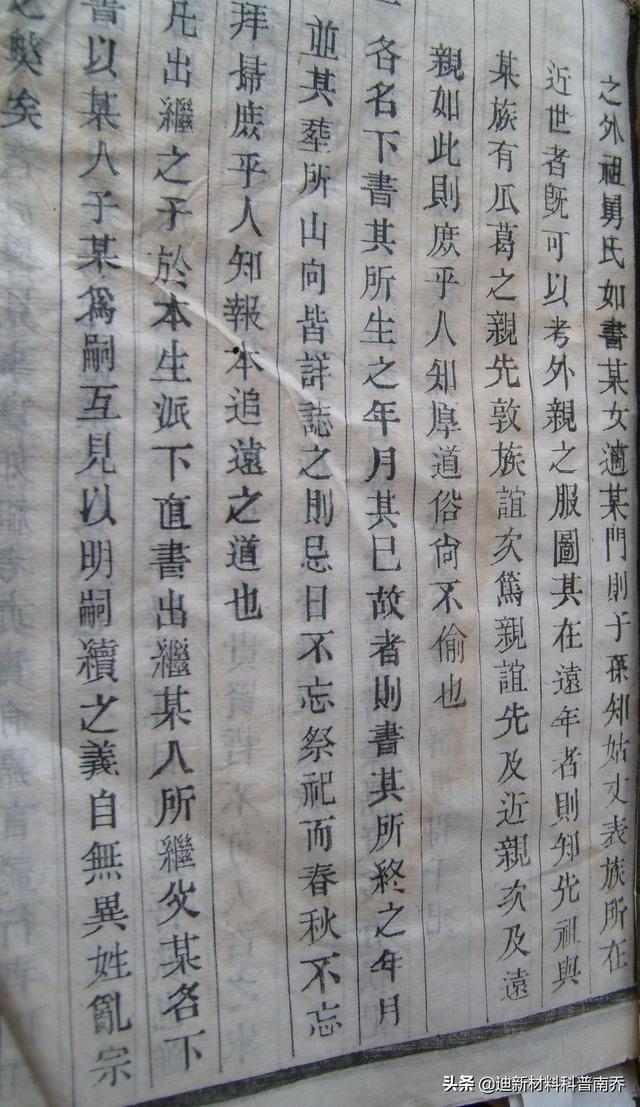 之外祖舅氏如書某女適某門則子孫知姑丈表族所在
近世者既可以考外親之服圖其在遠年者則知先祖與
某族有瓜葛之親先敦族誼次篤親誼先及近親次及遠
親如此則庶乎人知厚道俗尙不偷也
一各名下書其所生之年月其巳故者則書其所終之年月
並其塟所山向皆詳誌之則忌日不忘祭祀而春秋不忘
拜掃庶乎人知報本追遠之道也
凡出繼之子於本生派下直書出繼某人所繼父某名下
書以某人子某為嗣互見以明嗣續之義自無異姓亂宗
之獘矣
头条 @迪新材料科普南乔